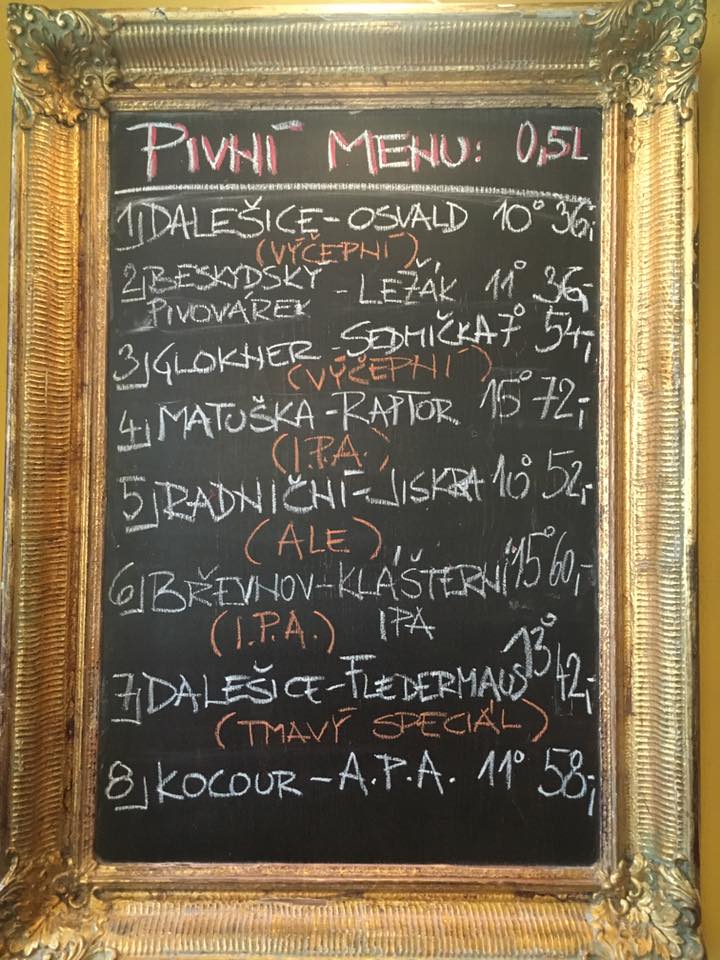 PIVNÍ MENU: 0,5L
1) DALEŠICE - OSVALD 10° 36,-
(VÝČEPNÍ)
2) BESKYDSKÝ PIVOVÁREK - LEŽÁK 11° 36,-
3) GLOKNER - SEDMIČKA 7° 54,-
(VÝČEPNÍ)
4) MATUŠKA - RAPTOR 15° 72,-
(I.P.A.)
5) RADNIČNÍ - JISKRA 10° 52,-
(ALE)
6) BŘEVNOV - KLÁŠTERNÍ 15° 60,-
(I.P.A.) IPA
7) DALEŠICE - FLEDERMAUS 13° 42,-
(TMAVÝ SPECIÁL)
8) KOCOUR - A.P.A. 11° 58,-